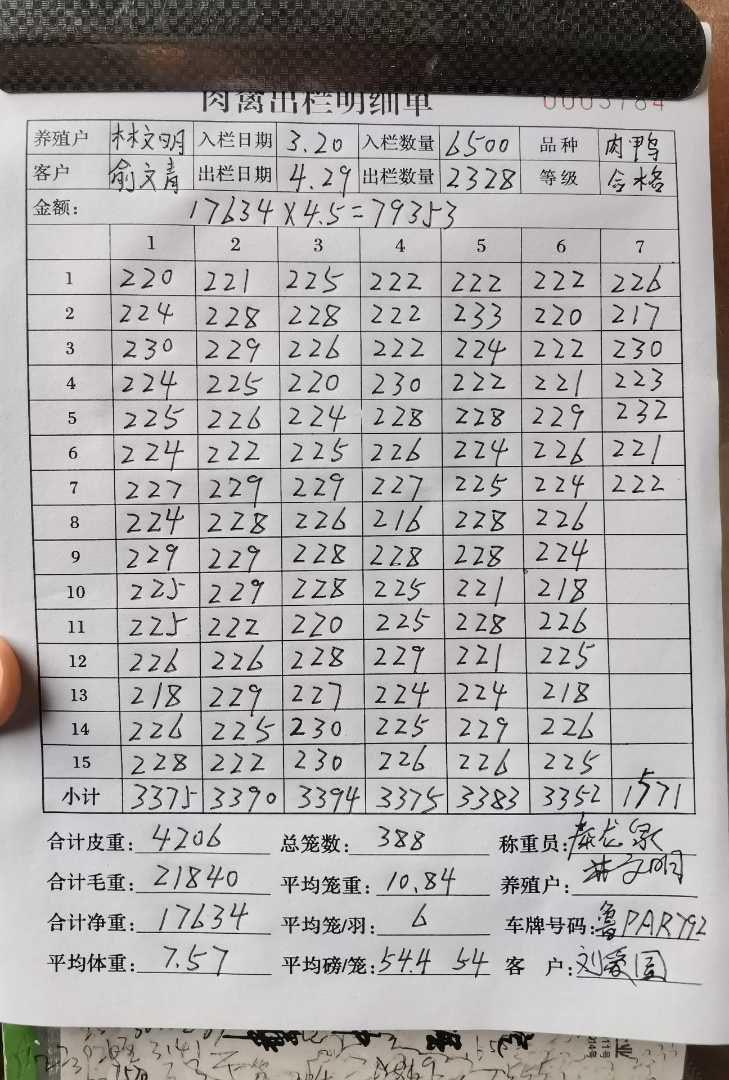 肉禽出栏明细单 0003784
养殖户 林文明 入栏日期 3.20 入栏数量 6500 品种 肉鸭
客户 俞文青 出栏日期 4.29 出栏数量 2328 等级 合格
金额: 17634×4.5=79353
1 2 3 4 5 6 7
1 220 221 225 222 222 222 226
2 224 228 228 222 233 220 217
3 230 229 226 222 224 222 230
4 224 225 220 230 222 221 223
5 225 226 224 228 228 229 232
6 224 222 225 226 224 226 221
7 227 229 229 227 225 224 222
8 224 228 226 216 228 226
9 229 229 228 228 228 224
10 225 229 228 225 221 218
11 225 222 220 225 228 226
12 226 226 228 229 221 225
13 218 229 227 224 224 218
14 226 225 230 225 229 226
15 228 222 230 226 226 225
小计 3375 3390 3394 3375 3383 3352 1571
合计皮重: 4206 总笼数: 388 称重员:
合计毛重: 21840 平均笼重: 10.84 养殖户:
合计净重: 17634 平均笼/羽: 6 车牌号码: 鲁PAR792
平均体重: 7.57 平均磅/笼: 54.4 54 客户: 刘爱国